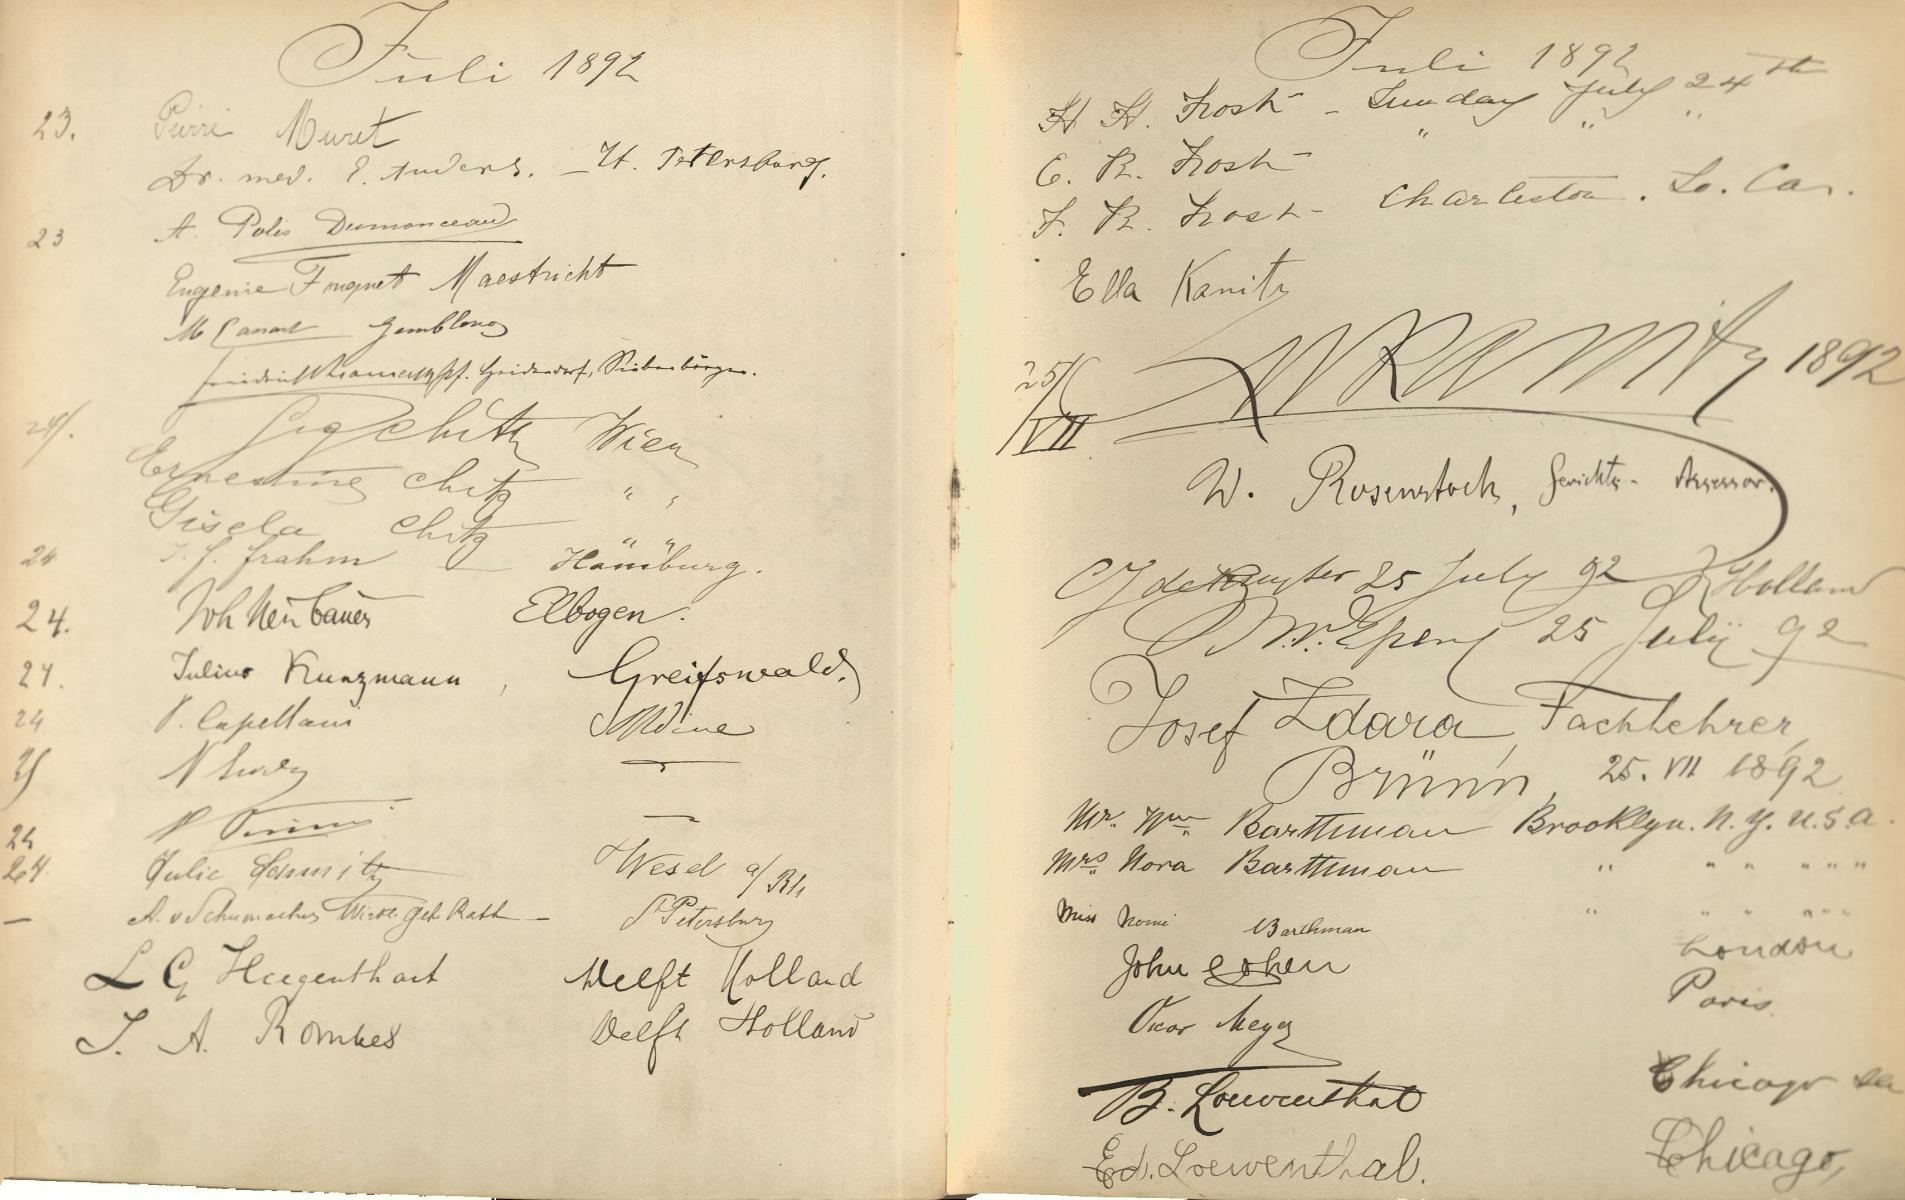 Juli 1892
23. Pierre Muret
Dr. med. E. Anders. – St. Petersburg.
23 A. Polis Dumonceau
Eugenie Maestricht
M Canart Gembloux
Siebenbürgen.
24/. Sig Chitz Wien
Ernestine Chitz " "
Gisela Chitz " "
24 J. f. frahm Hamburg.
24. Joh Neubauer Elbogen.
24. Julius Kunzmann, Greifswald.
24 P. Capellani Udine
25 N
24 P
24. Julie Schmitz Wesel a/Rh
– A. v Schumacher Wirkl. geh Rath – St Petersburg
L G Hoegenthart Delft Holland
J. A. Rombes Delft Holland
Juli 1892
H H. Frost – Sunday July 24th
E. R. Frost " " "
F. R. Frost – Charleston. So. Car.
Ella Kanitz
25/VII Kanitz 1892
W. Rosenstock, Gerichts-Assessor.
CJ de Kruyter 25 July 92 Holland
25 Julij 92
Josef Zdara, Fachlehrer,
Brünn, 25. VII 1892
Mr. Wm Barthman Brooklyn. N. Y. U.S.A.
Mrs Nora Barthman " " " " " "
Miss Nomi Barthman " " " " " "
John Cohen London
Oscar Meyer Paris.
B. Loewenthal Chicago
Ed. Loewenthal. Chicago,